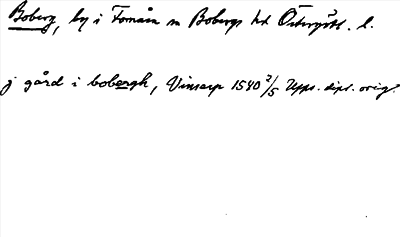 Boberg, by i Fornåsa sn Bobergs hd Östergötl. l.
j gård i bobergh, Vinserp 1540 2/5 Upps. dipl. orig.